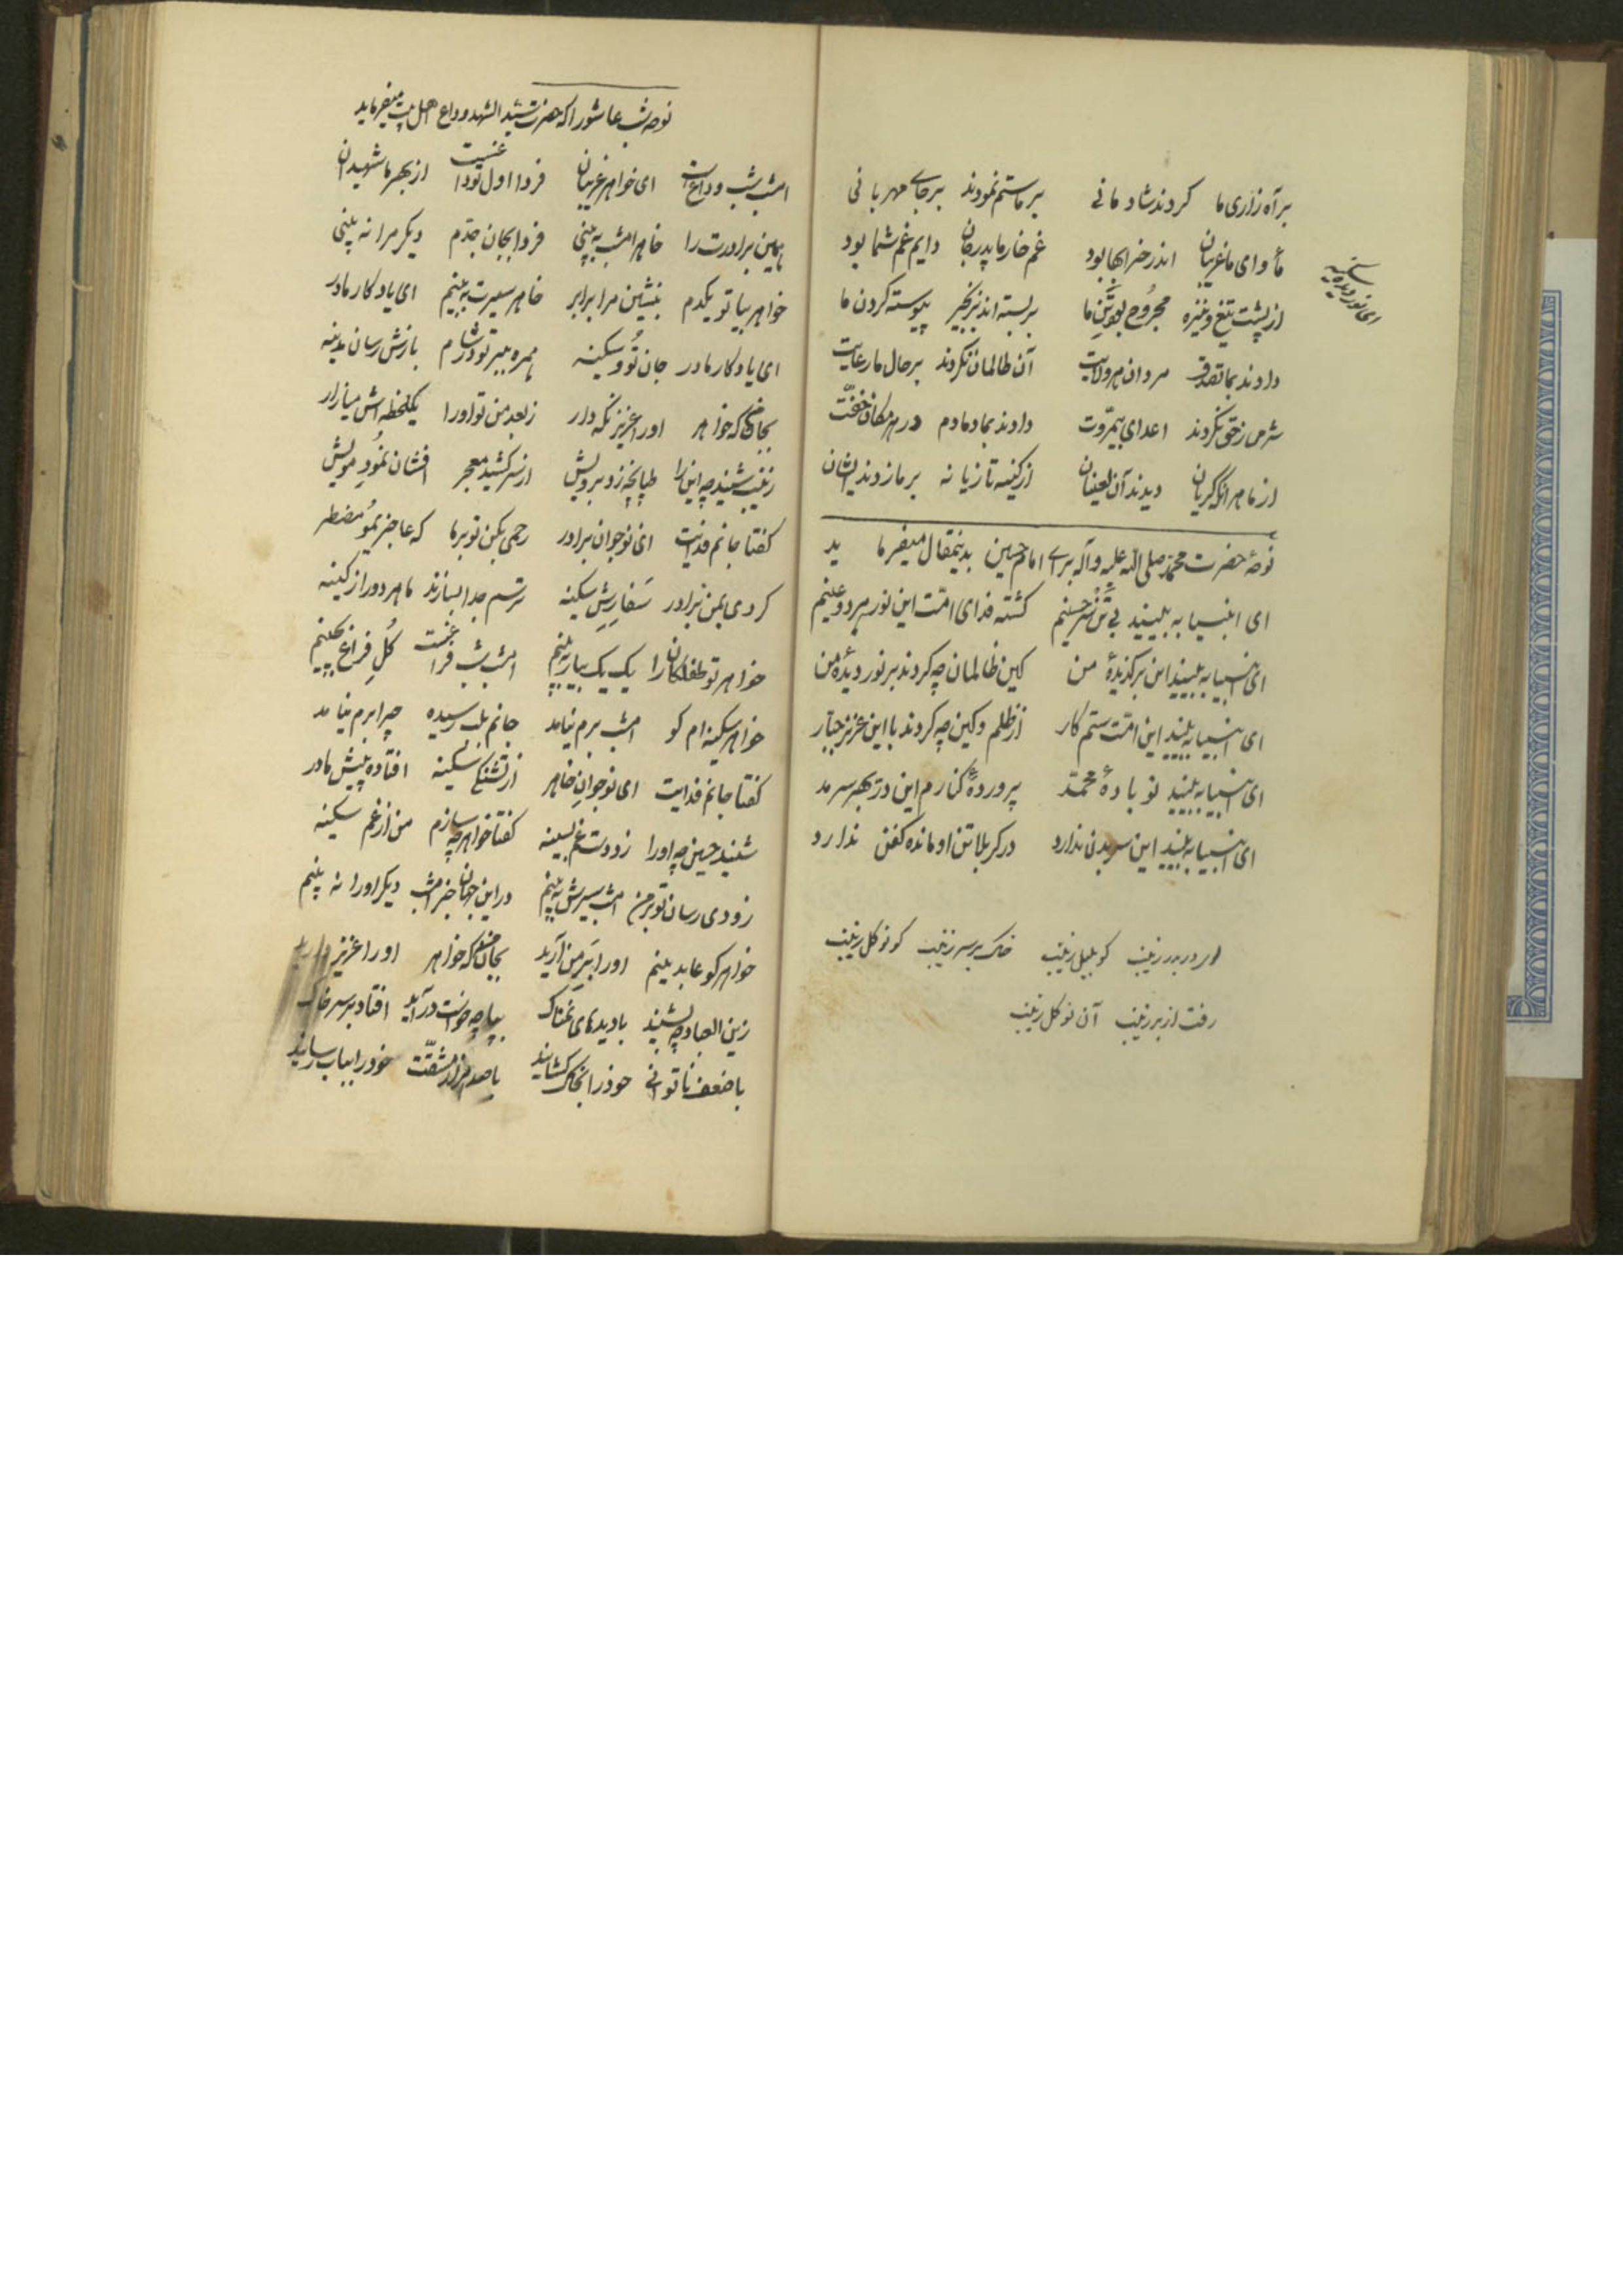 بر آه زاری ما کردند شادمانی بر ما ستم نمودند بر جای مهربانی
مأوای ما غریبان اندر خرابها بود غم خار ما پدرجان دایم غم شما بود
از پشت تیغ و نیزه مجروح بود تن ما بر بسته اند زنجیر پیوسته کردن ما
دادند بما تصدق مردان هر ولایت آن ظالمان نکردند بر حال ما رعایت
شرمی ز حق نکردند اعدای بیمروت دادند بما دمادم در هر مکان خفت
از ما هر آنکه گریان دیدند آن لعینان از کینه تازیانه بر ما زدند ایشان
ای نور دیده سکینه
نوحهٔ حضرت محمد صلی الله علیه و آله برای امام حسین بدینمقال میفرماید
ای انبیا به ببینید بی تن سر حسینم کشته فدای امت این نور هر دو عینم
ای انبیا به ببینید این برکزیدهٔ من کین ظالمان چه کردند بر نور دیدهٔ من
ای انبیا به ببینید این امت ستم کار از ظلم و کین چه کردند با این عزیز جبار
ای انبیا به ببینید نوبادهٔ محمد پروردهٔ کنارم این در بهر سرمد
ای انبیا به ببینید این سر بدنی ندارد در کربلا تن او مانده کفن ندارد
زینب کو بلبل زینب خاک بر سر زینب کو نو کل زینب
رفت از بر زینب آن نو کل زینب
نوحه شب عاشورا که حضرت سید الشهدا وداع اهل بیت میفرماید
امشب شب وداع است ای خواهر غریبان فردا اول عزایست از بهر ما شهیدان
به بین برادرت را خاهر امشب به بینی فردا بجان جدم دیکر مرا نه بینی
خواهر بیا تو یکدم بنشین مرا برابر خاهر سیرت به بینم ای یادکار مادر
ای یادکار مادر جان تو و سکینه همره ببر تو در شام بازش رسان مدینه
بجان که خواهر او را عزیز نکه دار ز بعد من تو او را یکلحظه اش میازار
زینب شنید چه این را طپانچه زد برویش از سر کشید معجر افشان نمود مویش
کفتا جانم فدایت ای نوجوان برادر رحمی بکن تو بر ما که عاجزیم و مضطر
کردی بمن برادر سفارش سکینه ترسم جدا بسازند ما هر دو را ز کینه
خواهر تو طفلکان را یک یک بیار به بینم امشب شب کل فراغ بچینم
خواهر سکینه ام کو امشب برم نیامد جانم بلب رسیده چرا برم نیامد
کفتا جانم فدایت ای نوجوان خاهر از تشنکی سکینه افتاده پیش مادر
شنید حسین چه او را زد دست غم بسینه کفتا خواهر چه سازم من از غم سکینه
زودی رسان تو بر من امشب سیرش به بینم در این جهان جز امشب دیکر او را نه بینم
خواهر کو عابدینم او را ببر من آرید بجان که خواهر او را عزیز دارید
زین العباد چه بشنید با دیدهای نمناک بپا چه خواست در آید افتاد بر سر خاک
با ضعف ناتوانی خود را بخاک کشانید با صد هزار مشقت خود را بباب رسانید